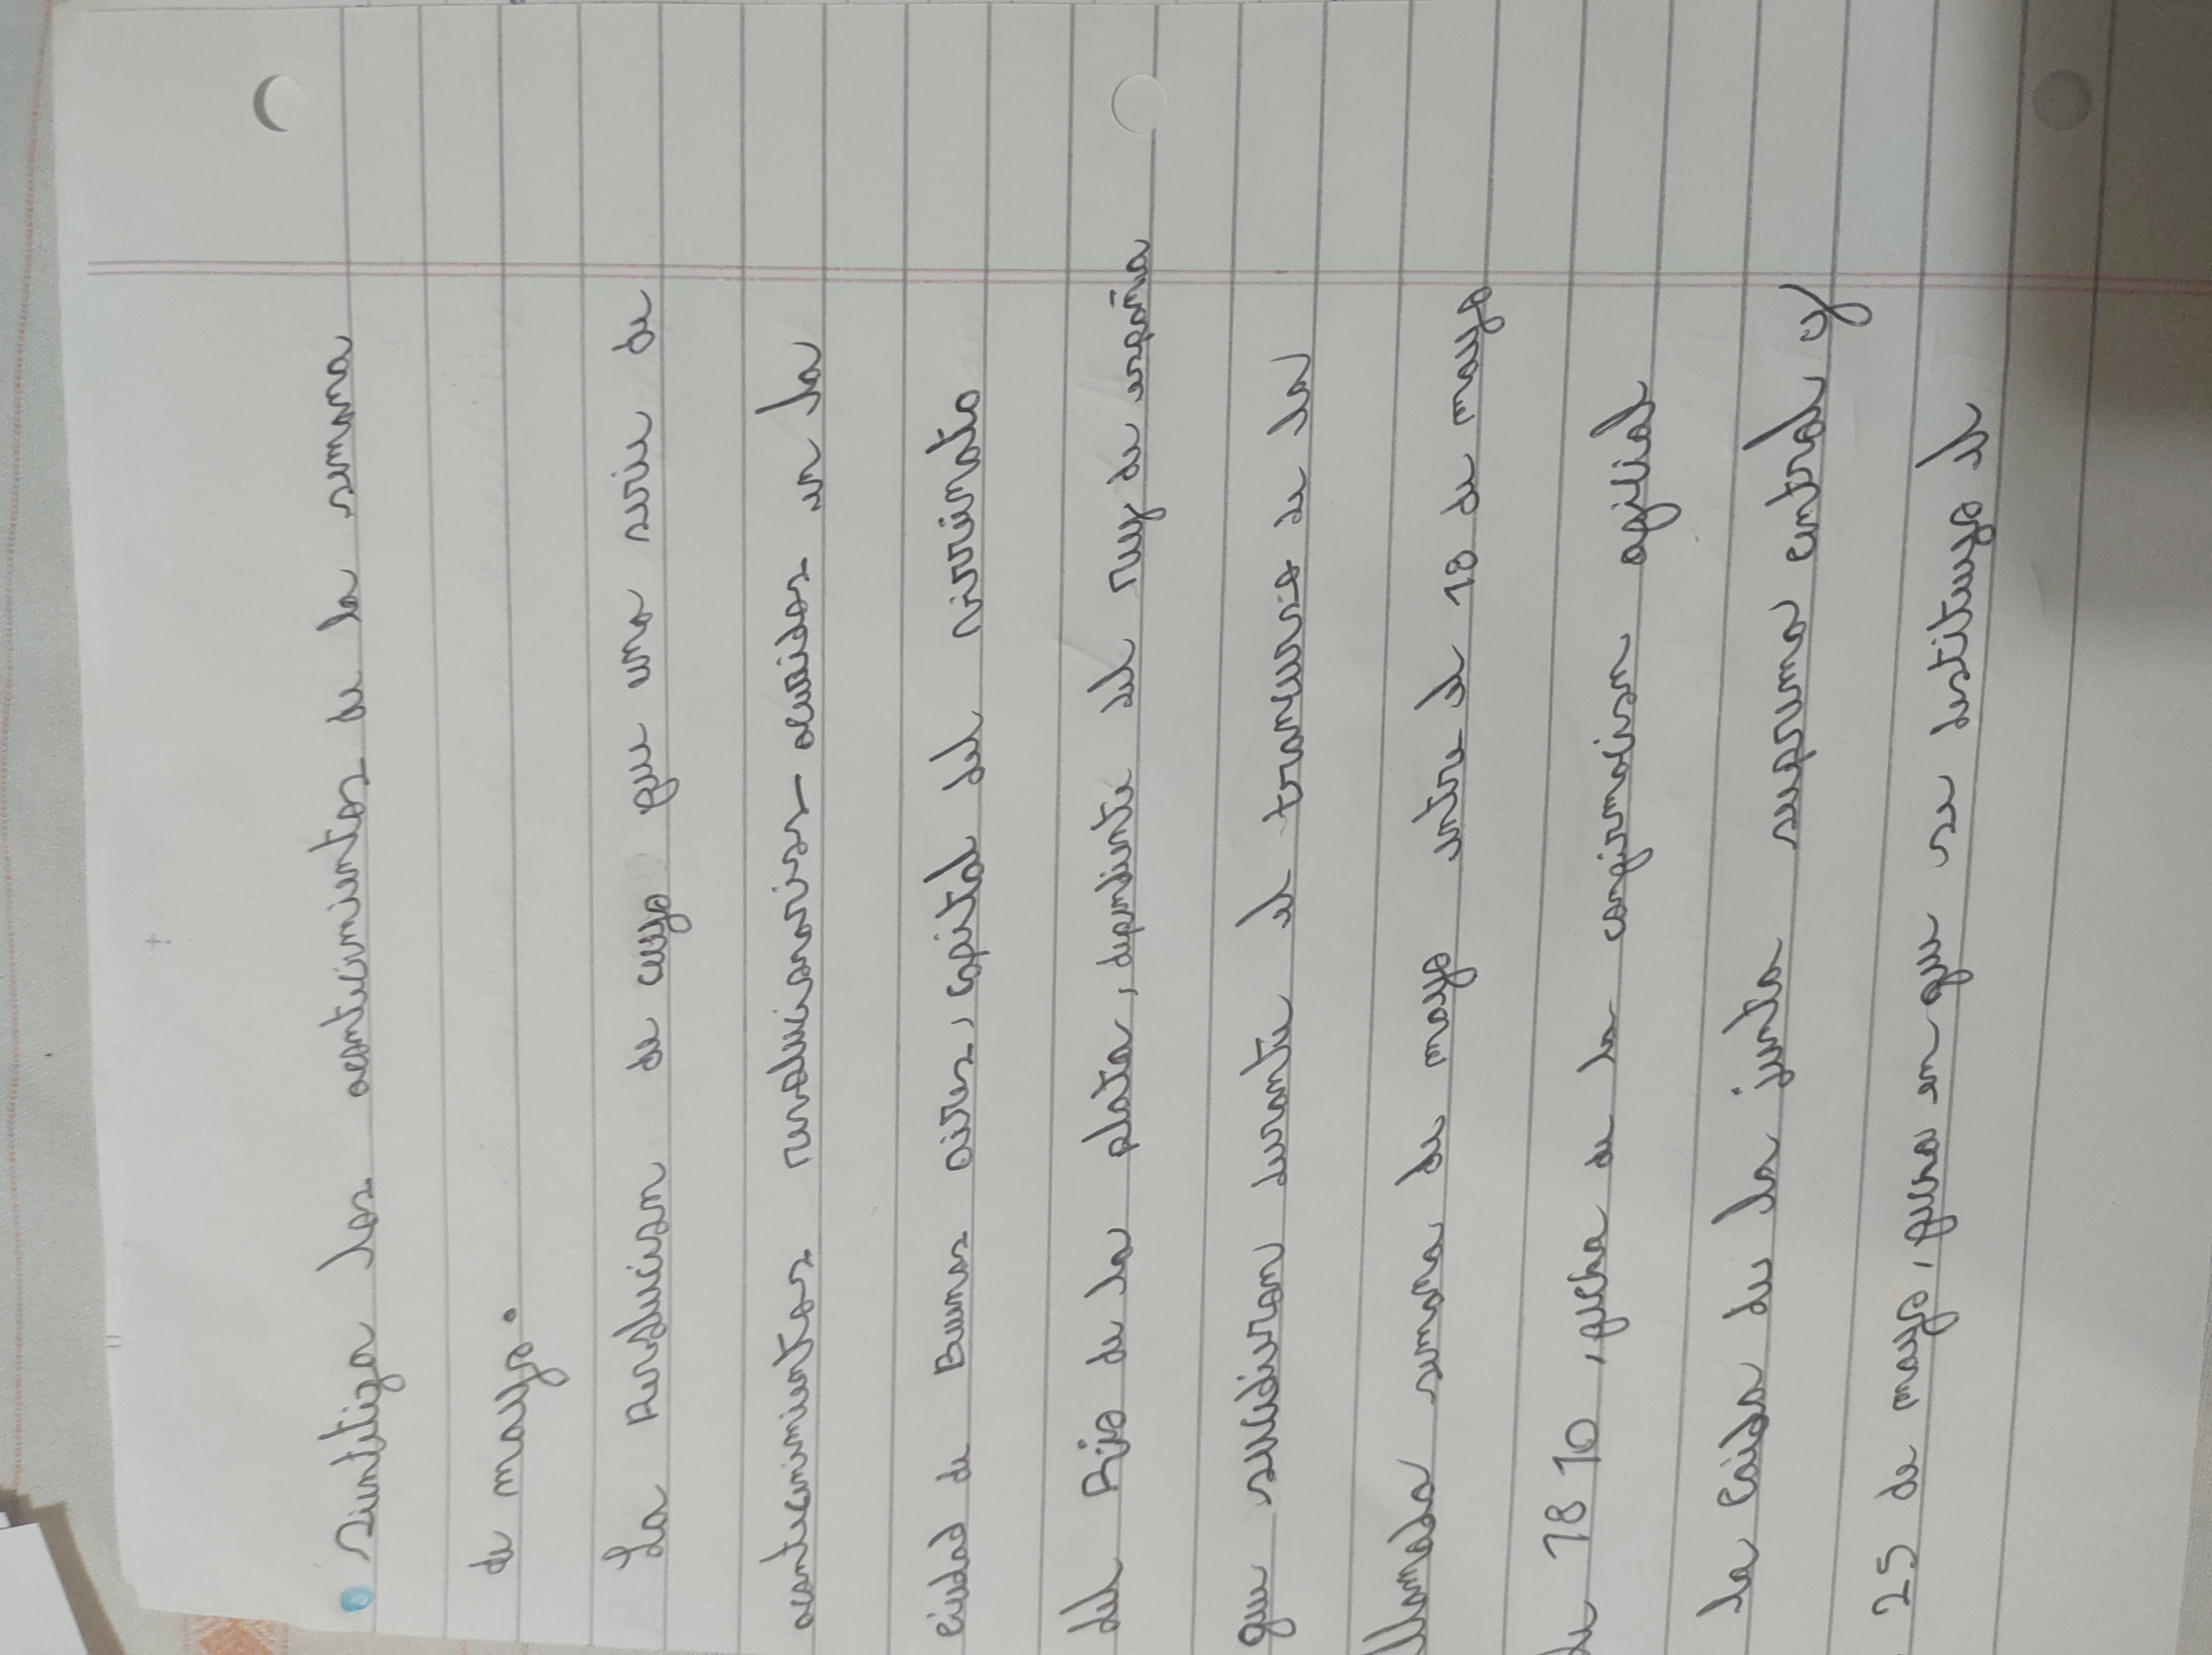 Sintetiza los acontecimientos de la semana
de mayo.
La Revolucion de cuyo que una serie de
acontecimientos revolucionarios ocurridos en la
ciudad de Buenos aires, capital del virrienato
del Rio de la plata, dependiente del rey de españa
que sucedieron durante el trancurrio de la
llamada semana de mayo entre el 18 de mayo
de 1810, fecha de la confirmacion oficial
la caida de la junta suprema central y
25 de mayo, fecha en que se destituyo el